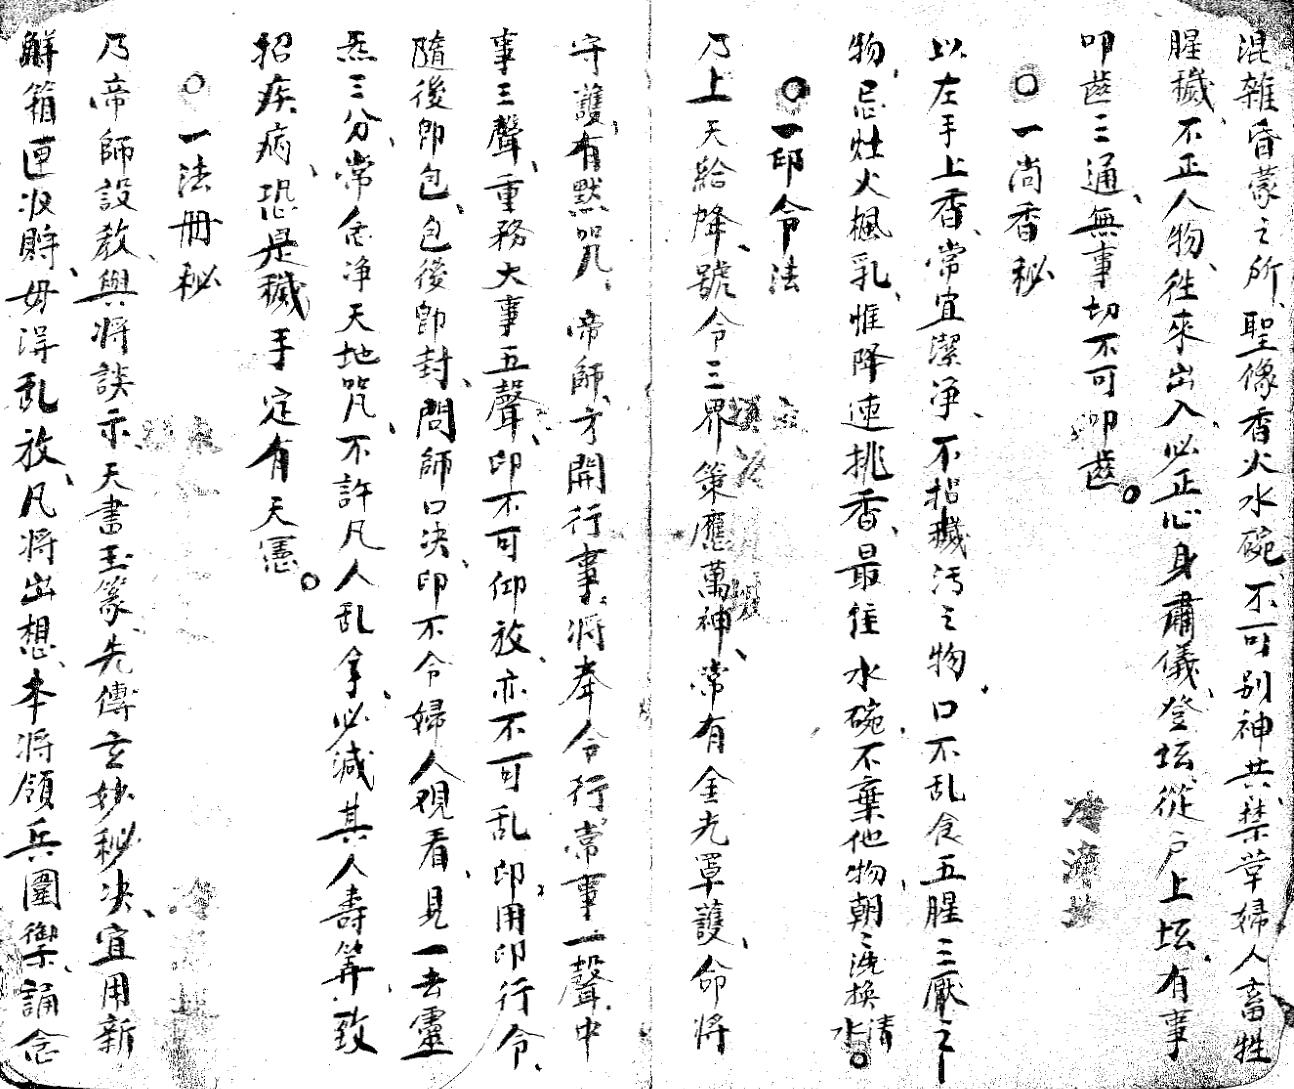 混雜昏蒙之所、聖像香火水碗、不可别神共、禁葷婦人畜牲
腥穢、不正人物、往來出入、必正心身肅儀、登坛從户上坛、有事
叩齒三通、無事切不可叩齒。
○一尚香秘
以左手上香、常宜潔净、不招穢污之物、口不乱食五腥三厭之
物、忌灶火楓乳、惟降速挑香、最佳水碗、不棄他物、朝々洗换清水。
○一印令法
乃上天給降、號令三界、策應萬神、常有金光罩護、命將
守護、有默咒、帝師、方開行事、將奉令行、常事一聲、中
事三聲、重務大事五聲、印不可仰放、亦不可乱印、用印行令、
隨後即包、包後即封、問師口决、印不令婦人觀看、見一去靈
炁三分、常念净天地咒、不許凡人乱拿、必減其人壽筭、致
招疾病、恐是穢手定有天憲。
○一法冊秘
乃帝師設教、與將談示、天書玉篆、先傳玄妙秘决、宜用新
鮮箱匣收貯、毋得乱放、凡將出想、本將領兵圍禦、誦念